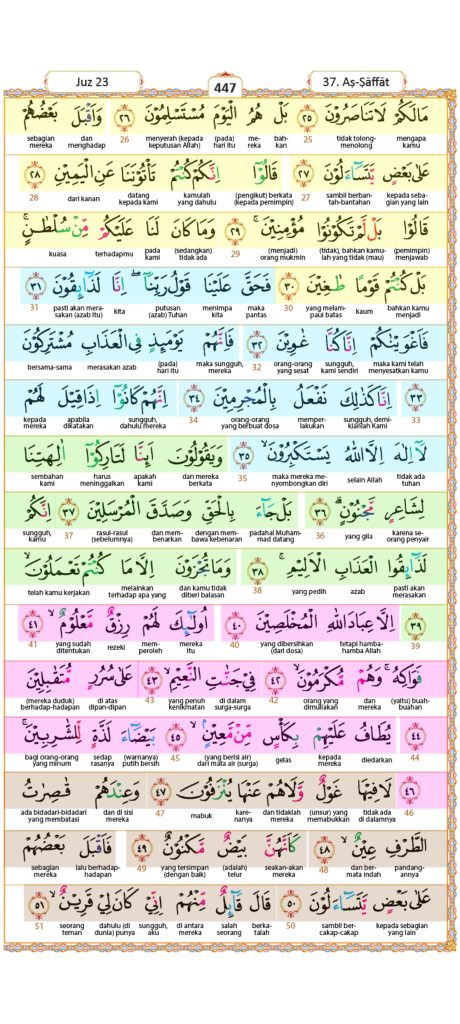 Juz 23
447
37. Aṣ-Ṣāffāt
مَا لَكُمْ لَا تَنَاصَرُوْنَ ٢٥ بَلْ هُمُ الْيَوْمَ مُسْتَسْلِمُوْنَ ٢٦ وَاَقْبَلَ بَعْضُهُمْ
mengapa kamu tidak tolong-menolong 25 bahkan mereka (pada) hari itu menyerah (kepada keputusan Allah) 26 dan menghadap sebagian mereka
عَلٰى بَعْضٍ يَّتَسَاۤءَلُوْنَ ٢٧ قَالُوْٓا اِنَّكُمْ كُنْتُمْ تَأْتُوْنَنَا عَنِ الْيَمِيْنِ ٢٨
kepada sebagian yang lain sambil berbantah-bantahan 27 (pengikut) berkata (kepada pemimpin) kamulah yang dahulu datang kepada kami dari kanan 28
قَالُوْا بَلْ لَّمْ تَكُوْنُوْا مُؤْمِنِيْنَۚ ٢٩ وَمَا كَانَ لَنَا عَلَيْكُمْ مِّنْ سُلْطٰنٍۚ
(pemimpin) menjawab (tidak), bahkan kamulah yang tidak (mau) (menjadi) orang mukmin 29 (sedangkan) tidak ada pada kami terhadapmu kuasa
بَلْ كُنْتُمْ قَوْمًا طٰغِيْنَ ٣٠ فَحَقَّ عَلَيْنَا قَوْلُ رَبِّنَآ ۖاِنَّا لَذَاۤىِٕقُوْنَ ٣١
bahkan kamu menjadi kaum yang melampaui batas 30 maka pantas menimpa kita putusan (azab) Tuhan kita pasti akan merasakan (azab itu) 31
فَاَغْوَيْنٰكُمْ اِنَّا كُنَّا غٰوِيْنَ ٣٢ فَاِنَّهُمْ يَوْمَىِٕذٍ فِى الْعَذَابِ مُشْتَرِكُوْنَ
maka kami telah menyesatkan kamu sungguh, kami sendiri orang-orang yang sesat 32 maka sungguh, mereka (pada) hari itu merasakan azab bersama-sama
٣٣ اِنَّا كَذٰلِكَ نَفْعَلُ بِالْمُجْرِمِيْنَ ٣٤ اِنَّهُمْ كَانُوْٓا اِذَا قِيْلَ لَهُمْ
33 sungguh, demikianlah Kami memperlakukan orang-orang yang berbuat dosa 34 sungguh, dahulu mereka apabila dikatakan kepada mereka
لَآ اِلٰهَ اِلَّا اللّٰهُ يَسْتَكْبِرُوْنَۙ ٣٥ وَيَقُوْلُوْنَ اَىِٕنَّا لَتَارِكُوْٓا اٰلِهَتِنَا
tidak ada tuhan selain Allah maka mereka menyombongkan diri 35 dan mereka berkata apakah kami harus meninggalkan sembahan kami
لِشَاعِرٍ مَّجْنُوْنٍۗ ٣٦ بَلْ جَاۤءَ بِالْحَقِّ وَصَدَّقَ الْمُرْسَلِيْنَ ٣٧ اِنَّكُمْ
karena seorang penyair yang gila 36 padahal Muhammad datang dengan membawa kebenaran dan membenarkan rasul-rasul (sebelumnya) 37 sungguh, kamu
لَذَاۤىِٕقُوا الْعَذَابِ الْاَلِيْمِۚ ٣٨ وَمَا تُجْزَوْنَ اِلَّا مَا كُنْتُمْ تَعْمَلُوْنَۙ
pasti akan merasakan azab yang pedih 38 dan kamu tidak diberi balasan melainkan terhadap apa yang telah kamu kerjakan
٣٩ اِلَّا عِبَادَ اللّٰهِ الْمُخْلَصِيْنَ ٤٠ اُولٰۤىِٕكَ لَهُمْ رِزْقٌ مَّعْلُوْمٌۙ ٤١
39 tetapi hamba-hamba Allah yang dibersihkan (dari dosa) 40 mereka itu memperoleh rezeki yang sudah ditentukan 41
فَوَاكِهُ ۚوَهُمْ مُّكْرَمُوْنَۙ ٤٢ فِيْ جَنّٰتِ النَّعِيْمِۙ ٤٣ عَلٰى سُرُرٍ مُّتَقٰبِلِيْنَ
(yaitu) buah-buahan dan mereka orang yang dimuliakan 42 di dalam surga-surga yang penuh kenikmatan 43 di atas dipan-dipan (mereka duduk) berhadap-hadapan
٤٤ يُطَافُ عَلَيْهِمْ بِكَأْسٍ مِّنْ مَّعِيْنٍۙ ٤٥ بَيْضَاۤءَ لَذَّةٍ لِّلشّٰرِبِيْنَۚ
44 diedarkan kepada mereka gelas (yang berisi air) dari mata air (surga) 45 (warnanya) putih bersih sedap rasanya bagi orang-orang yang minum
٤٦ لَا فِيْهَا غَوْلٌ وَّلَا هُمْ عَنْهَا يُنْزَفُوْنَ ٤٧ وَعِنْدَهُمْ قٰصِرٰتُ
46 tidak ada di dalamnya (unsur) yang memabukkan dan tidaklah mereka karenanya mabuk 47 dan di sisi mereka ada bidadari-bidadari yang membatasi
الطَّرْفِ عِيْنٌۙ ٤٨ كَاَنَّهُنَّ بَيْضٌ مَّكْنُوْنٌ ٤٩ فَاَقْبَلَ بَعْضُهُمْ
pandangannya dan bermata indah 48 seakan-akan mereka (adalah) telur yang tersimpan (dengan baik) 49 lalu berhadap-hadapan sebagian mereka
عَلٰى بَعْضٍ يَّتَسَاۤءَلُوْنَ ٥٠ قَالَ قَاۤىِٕلٌ مِّنْهُمْ اِنِّيْ كَانَ لِيْ قَرِيْنٌۙ ٥١
kepada sebagian yang lain sambil bercakap-cakap 50 berkatalah salah seorang di antara mereka sungguh, aku dahulu (di dunia) punya seorang teman 51